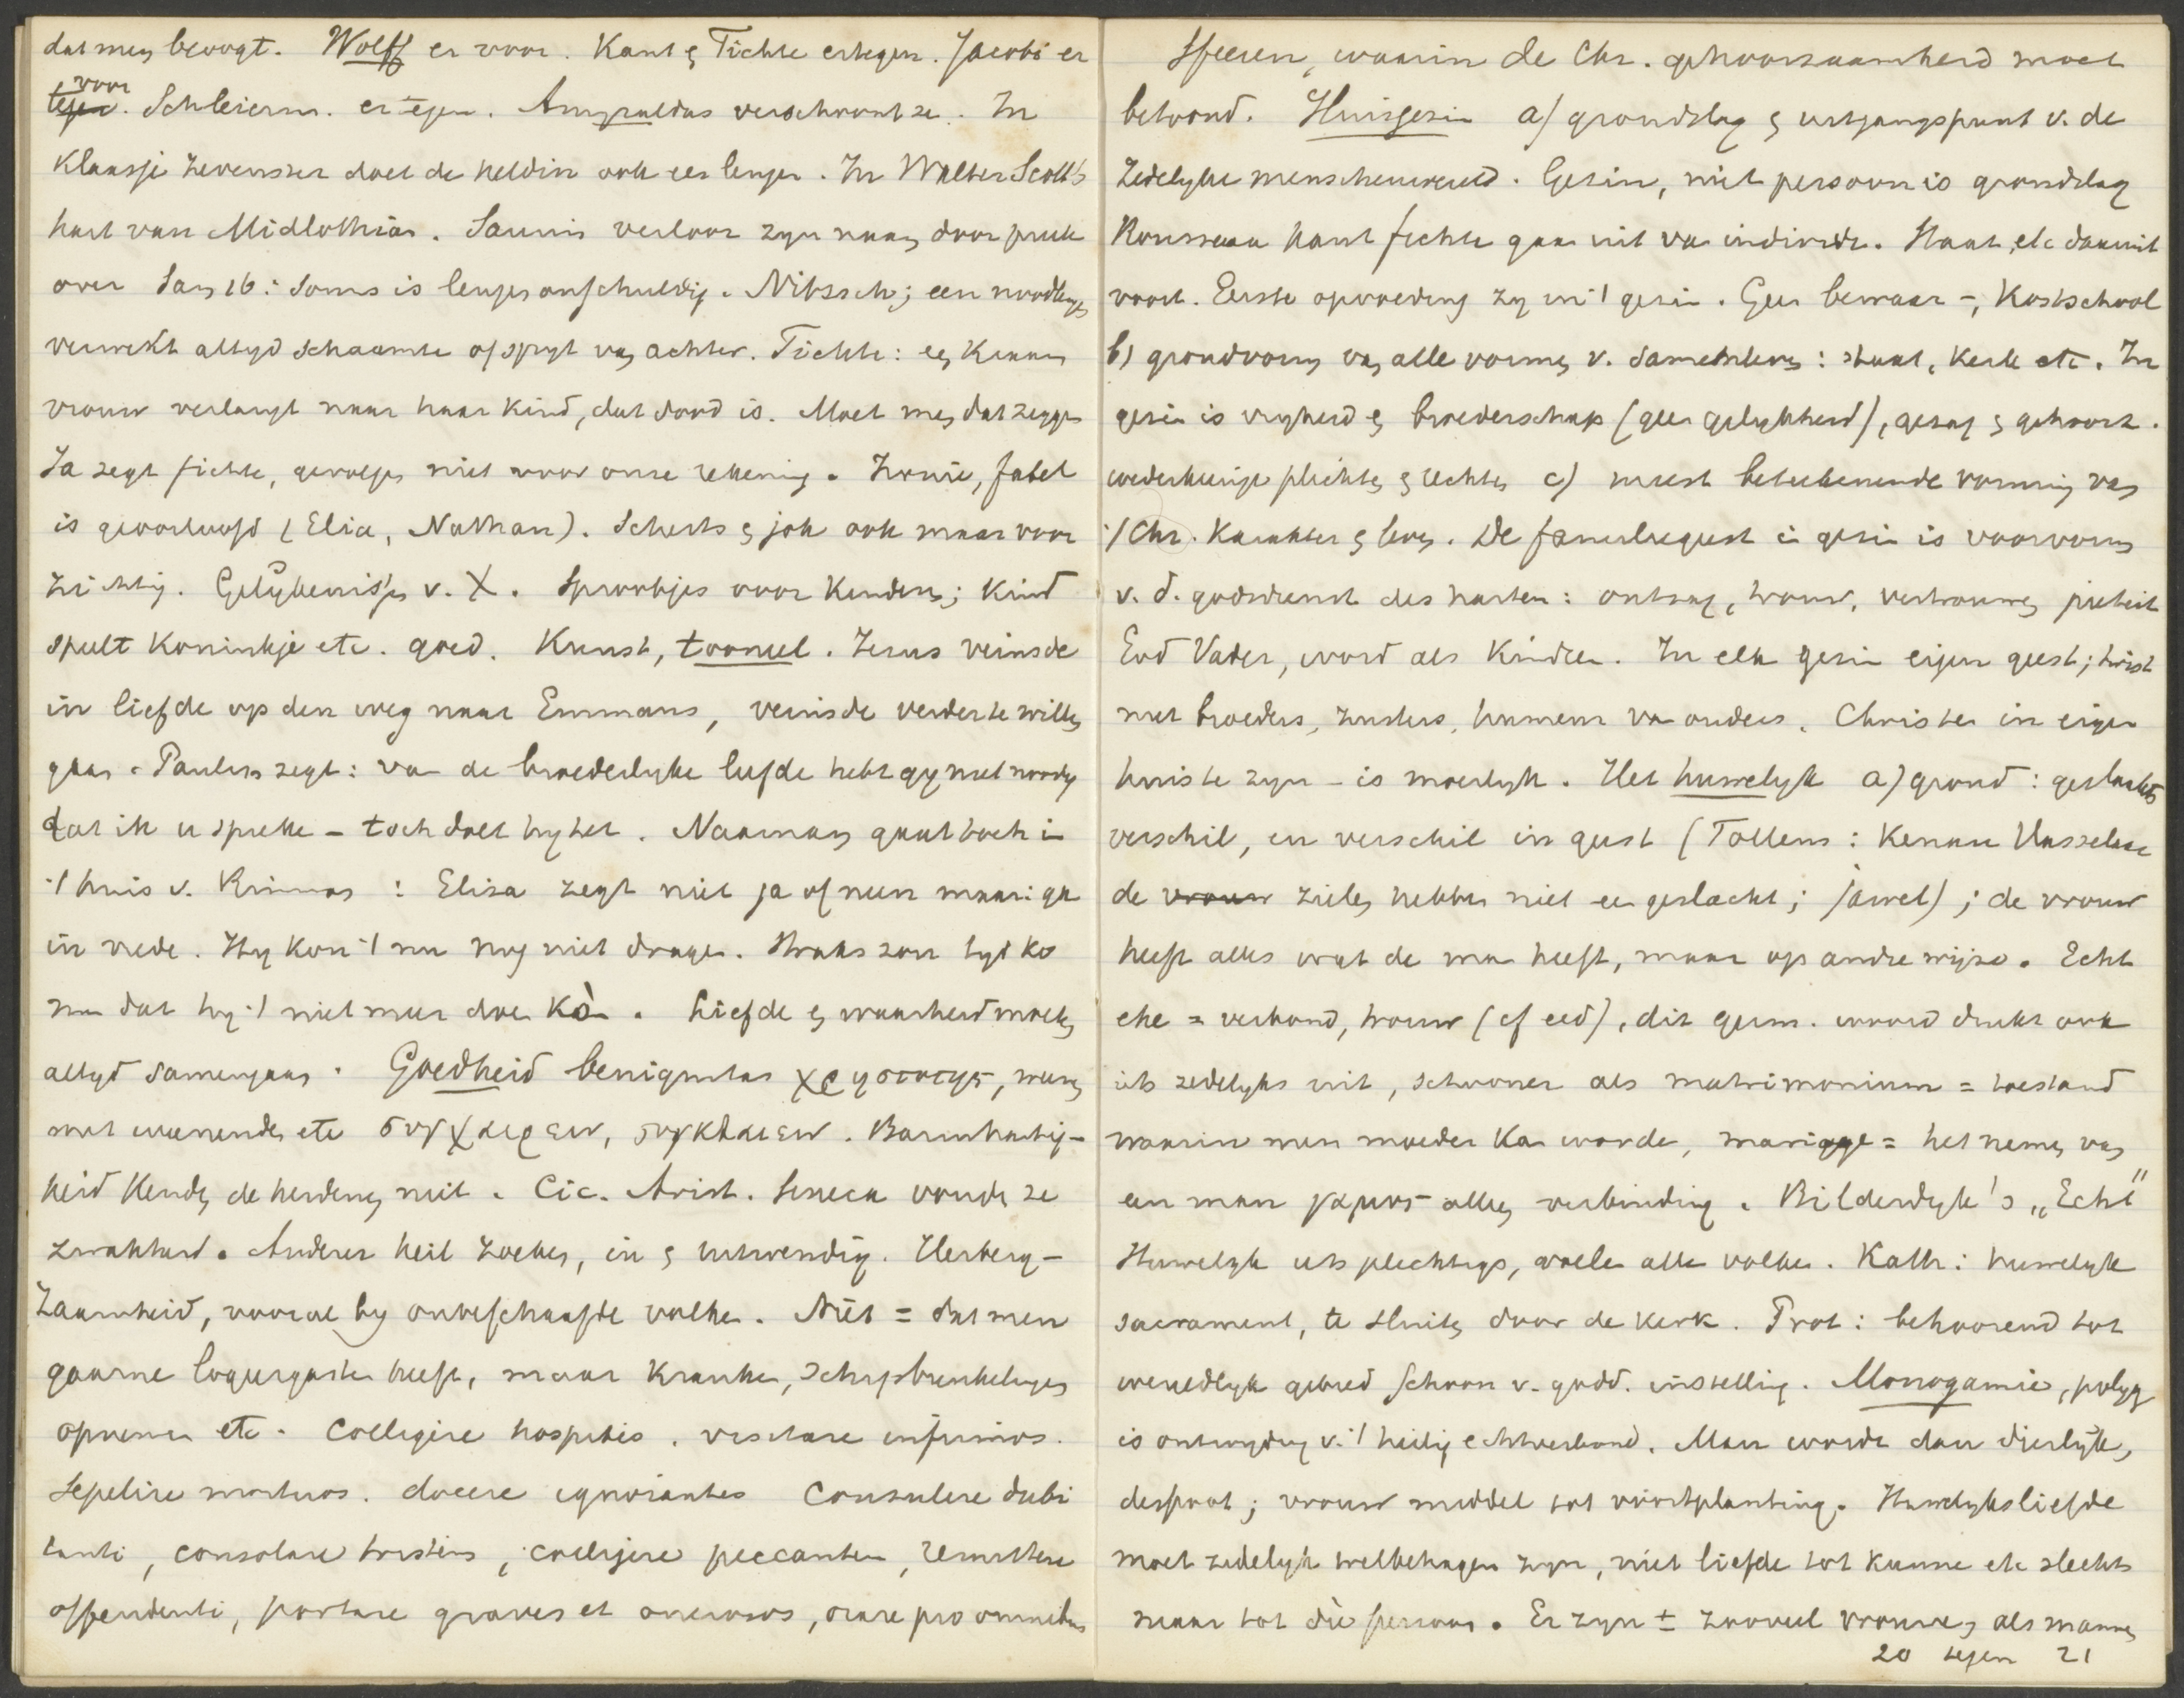 dat men beoogt. Wolff er voor. Kant & Fichte ertegen. Jacobi er
voor
tegen. Schleierm. er tegen. Amyraldus verschoont ze. In
Klaasje Zevenster doet de heldin ook een leugen. In Walter Scott's
hart van Midlothian. Saurin verloor zyn naam door preek
over Sam 16: soms is leugen onschuldig. Nitzsch; een noodleugen
verwekt altyd schaamte of spyt van achter. Fichte: een kranke
vrouw verlangt naar haar kind, dat dood is. Moet men dat zeggen
Ja zegt fichte, gevolgen niet voor onze rekening. Ironie, fabel
is geoorloofd (Elia, Nathan). Scherts & jok ook maar voor
zichtig. Gelykenissen v. X. Sprookjes voor kinderen; kind
speelt koninkje etc. goed. Kunst, tooneel. Jezus veinsde
in liefde op den weg naar Emmaus, veinsde verder te willen
gaan. Paulus zegt: van de broederlyke liefde hebt gy niet noodig
dat ik u spreke - toch doet hy het. Naaman gaat toch in
't huis v. Rimmon: Elisa zegt niet ja of neen maar: ga
in vrede. Hy kon 't nu nog niet dragen. Straks zou tyd ko
men dat hy 't niet meer doen kòn. Liefde & waarheid moeten
altyd samengaan. Goedheid benignitas χρηστοτης, weenen
met weenenden etc συγχαιρειν, συγκλαιειν. Barmhartig-
heid kenden de heidenen niet. Cic. Arist. Seneca vonden ze
zwakheid. Anderer heil zoeken, in & uitwendig. Herberg-
zaamheid, vooral by onbeschaafde volken. Niet = dat men
gaarne logeergasten heeft, maar kranken, schipbreukelingen
opnemen etc. Colligere hospites, visitare infirmos.
Sepelire mortuos. docere ignorantes Consulere dubi
tanti, consolare tristem, corrigere peccantem, remittere
offendenti, portare graves et onerosos, orare pro omnibus
Sfeeren, waarin de Chr. gehoorzaamheid moet
betoond. Huisgezin a) grondslag & uitgangspunt v. de
Zedelyke menschenwereld. Gezin, niet persoon is grondslag
Rousseau Kant fichte gaan uit van individu. Staat etc daaruit
voort. Eerste opvoeding zy in 't gezin. Geen bewaar-, Kostschool
b) grondvorm van alle vormen v. samenleven: staat, Kerk etc. In
gezin is vryheid & broederschap (geen gelykheid), gezag & gehoorz.
wederkeerige plichten & rechten c) meest beteekenende vorming van
't Chr. Karakter & leven. De familiegeest in gezin is voorvorm
v. d. godsdienst des harten: ontzag, trouw, vertrouwen pieteit
God Vader, word als kinderen. In elk gezin eigen geest; twist
met broeders, zusters, humeur van ouders. Christen in eigen
huis te zyn - is moeilyk. Het huwelyk a) grond: geslachts
verschil, en verschil in geest (Tollens: Kenau Hasselaar
de vrouw zielen hebben niet een geslacht; jawel); de vrouw
heeft alles wat de man heeft, maar op andre wijze. Echt
ehe = verbond, trouw (cf eed), dit germ. woord drukt ook
iets zedelyks uit, schooner als matrimonium = toestand
waarin men moeder kan worden, mariage = het nemen van
een man γαμος alleen verbinding. Bilderdyk's „Echt"
Huwelyk iets plechtigs, voelen alle volken. Kath: huwelyk
sacrament, te sluiten door de kerk. Prot: behoorend tot
wereldlyk gebied schoon v. godd. instelling. Monogamie, polyg
is ontwyding v. 't heilig echtverbond. Man wordt dan dierlyk,
despoot; vrouw middel tot voortplanting. Huwelyksliefde
moet zedelyk welbehagen zyn, niet liefde tot kunne etc slechts
maar tot die persoon. Er zyn ± zooveel vrouwen als mannen
20 tegen 21